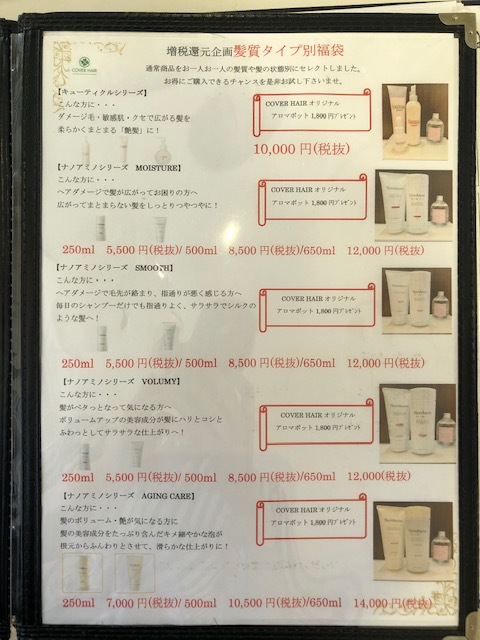 増税還元企画髪質タイプ別福袋
COVER HAIR
通常商品をお一人お一人の髪質や髪の状態別にセレクトしました。
お得にご購入できるチャンスを是非お試し下さいませ。
【キューティクルシリーズ】
こんな方に・・・
ダメージ毛・敏感肌・クセで広がる髪を
柔らかくまとまる「艶髪」に!
COVER HAIR オリジナル
アロマポット 1,800 円プレゼント
10,000 円(税抜)
【ナノアミノシリーズ MOISTURE】
こんな方に・・・
ヘアダメージで髪が広がってお困りの方へ
広がってまとまらない髪をしっとりつやつやに!
COVER HAIR オリジナル
アロマポット 1,800 円プレゼント
250ml 5,500 円(税抜)/ 500ml 8,500 円(税抜)/650ml 12,000 円(税抜)
【ナノアミノシリーズ SMOOTH】
こんな方に・・・
ヘアダメージで毛先が絡まり、指通りが悪く感じる方へ
毎日のシャンプーだけでも指通りよく、サラサラでシルクの
ような髪へ!
COVER HAIR オリジナル
アロマポット 1,800 円プレゼント
250ml 5,500 円(税抜)/ 500ml 8,500 円(税抜)/650ml 12,000 円(税抜)
【ナノアミノシリーズ VOLUMY】
こんな方に・・・
髪がペタっとなって気になる方へ
ボリュームアップの美容成分が髪にハリとコシと
ふわっとしてサラサラな仕上がりへ!
COVER HAIR オリジナル
アロマポット 1,800 円プレゼント
250ml 5,500 円(税抜)/ 500ml 8,500 円(税抜)/650ml 12,000(税抜)
【ナノアミノシリーズ AGING CARE】
こんな方に・・・
髪のボリューム・艶が気になる方に
髪の美容成分をたっぷり含んだキメ細やかな泡が
根元からふんわりとさせて、滑らかな仕上がりに!
COVER HAIR オリジナル
アロマポット 1,800 円プレゼント
250ml 7,000 円(税抜)/ 500ml 10,500 円(税抜)/650ml 14,000 円(税抜)